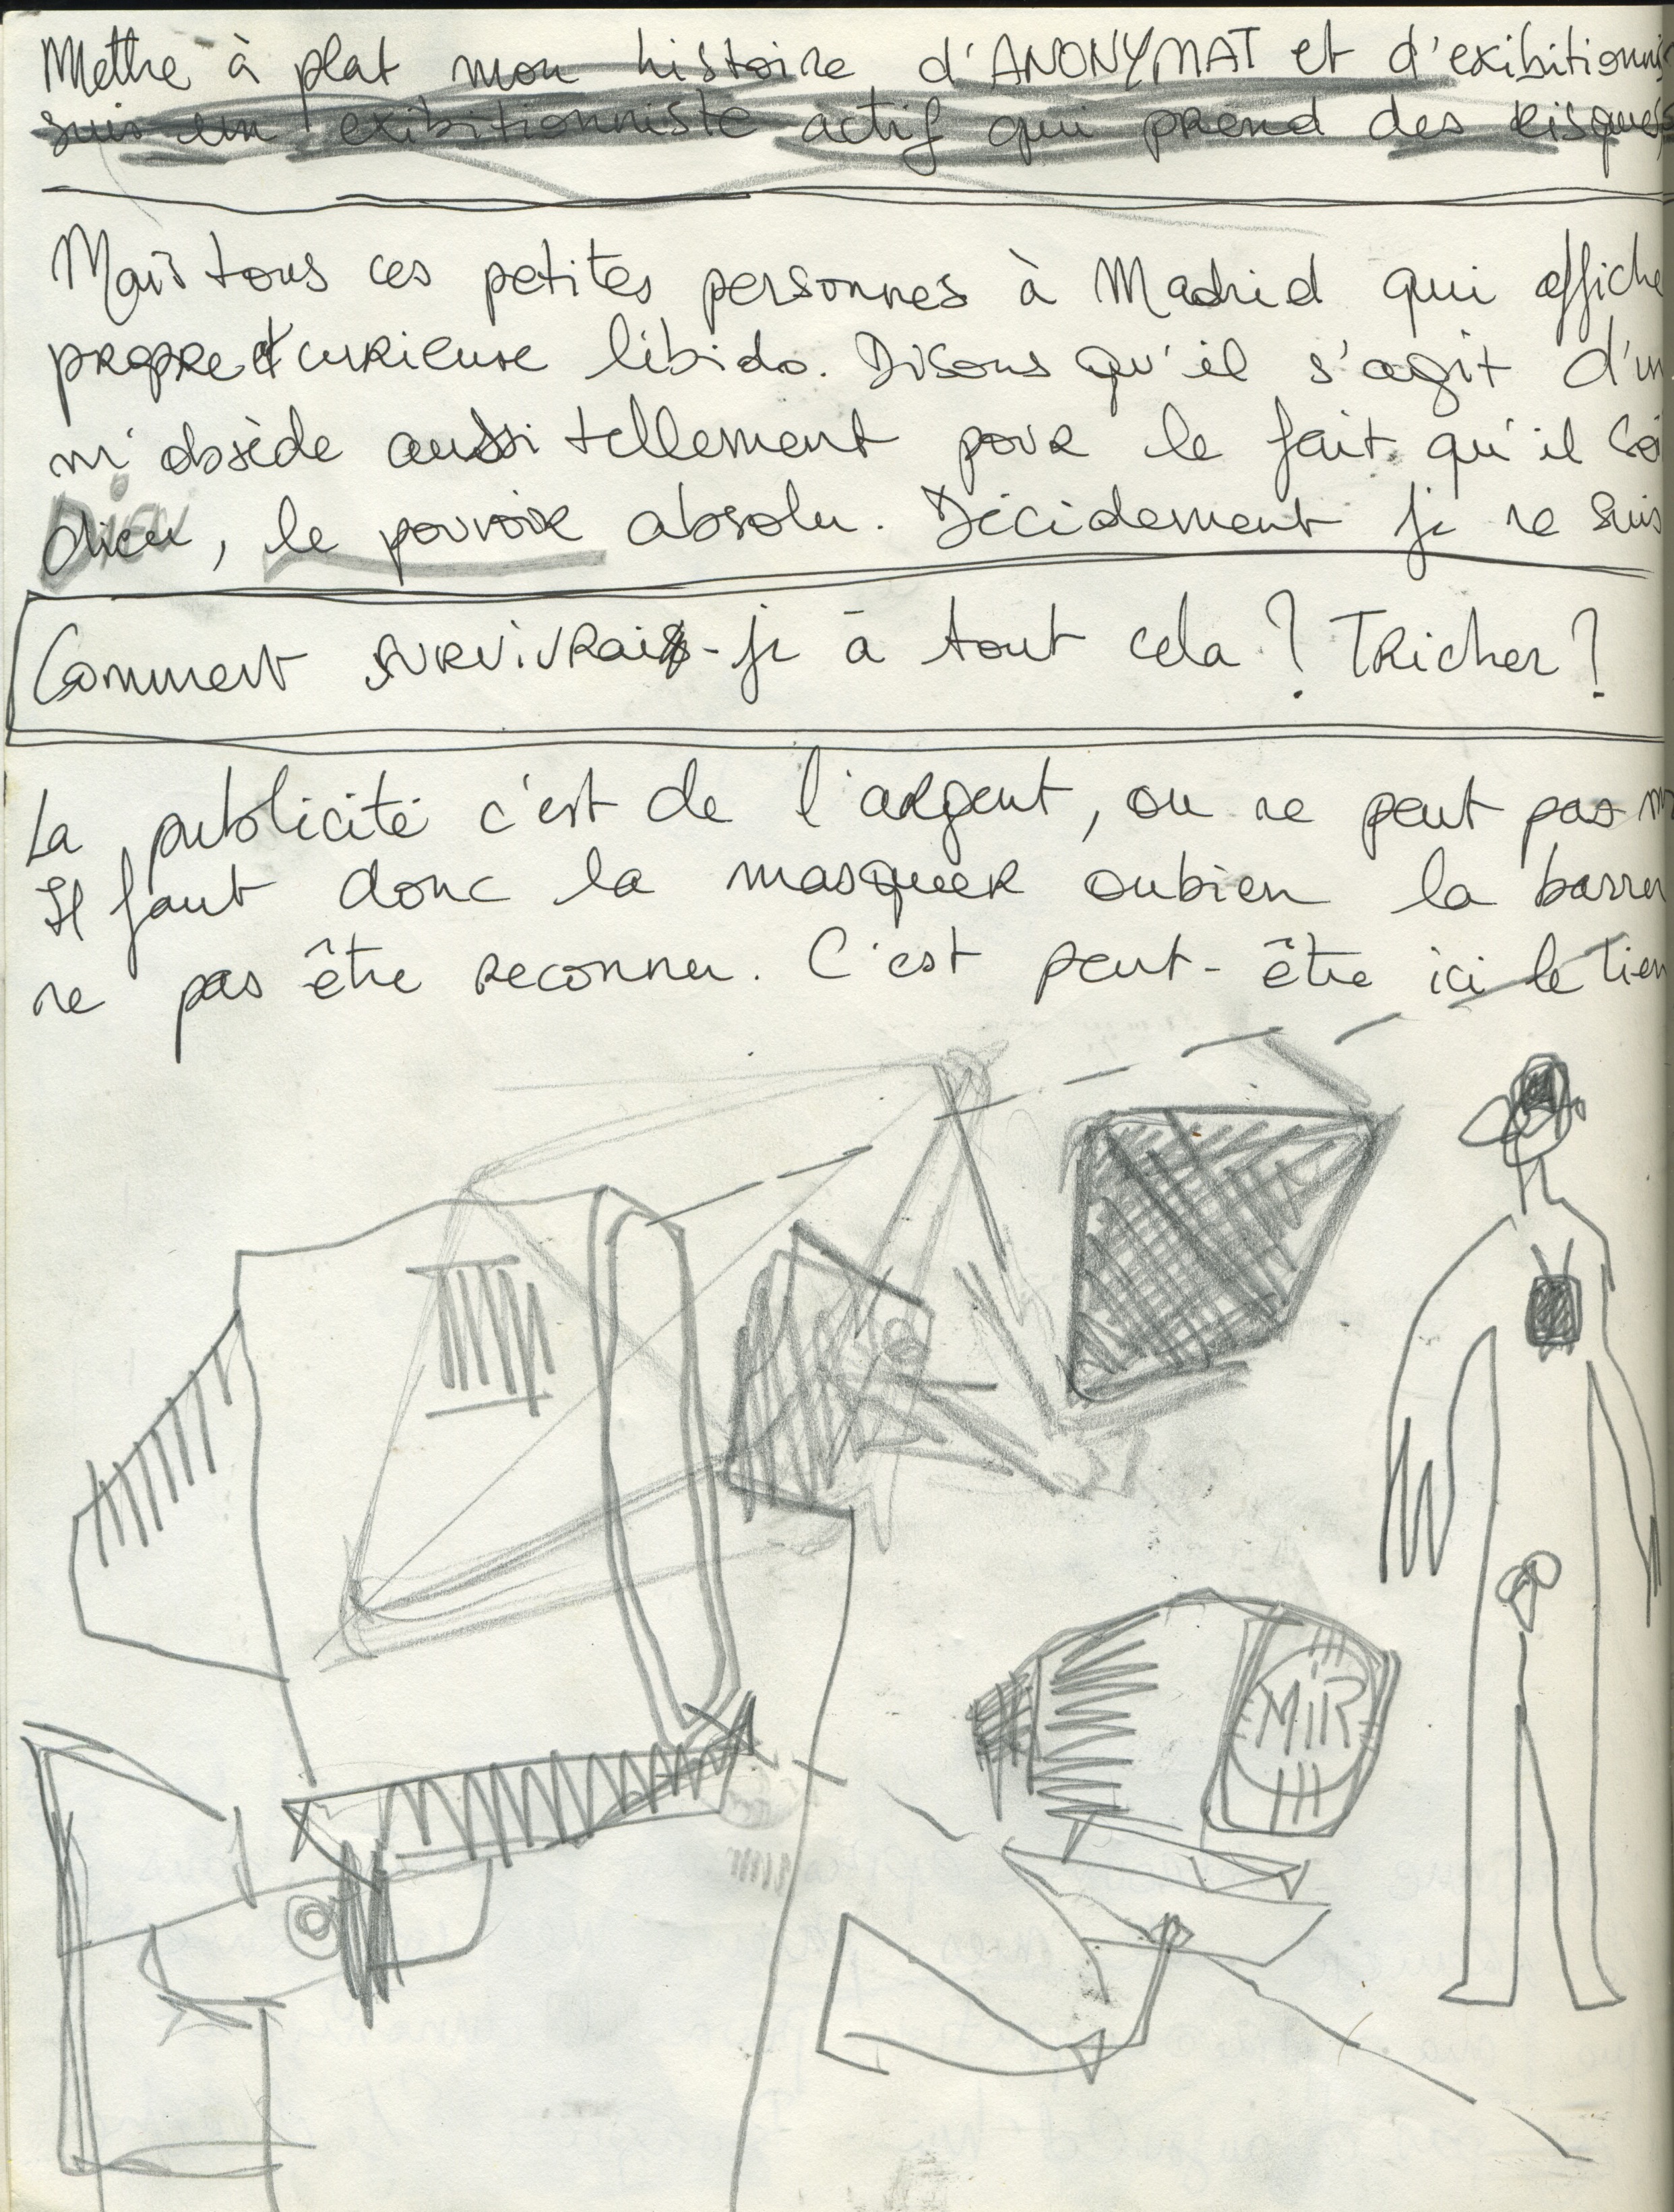 Mettre à plat mon histoire d'ANONYMAT et d'exibitionnis
suis un exibitionniste actif qui prend des risques
Mais tous ces petites personnes à Madrid qui affiche
propre et curieuse libido. Disons qu'il s'agit d'un
m'obsède aussi tellement pour le fait qu'il soi
dieu, le pouvoir absolu. Décidement je ne suis
Comment survivrai-je à tout cela ? Tricher ?
La publicité c'est de l'argent, on ne peut pas m
Il faut donc la masquer oubien la barrer
ne pas être reconnu. C'est peut-être ici le lien
MiR